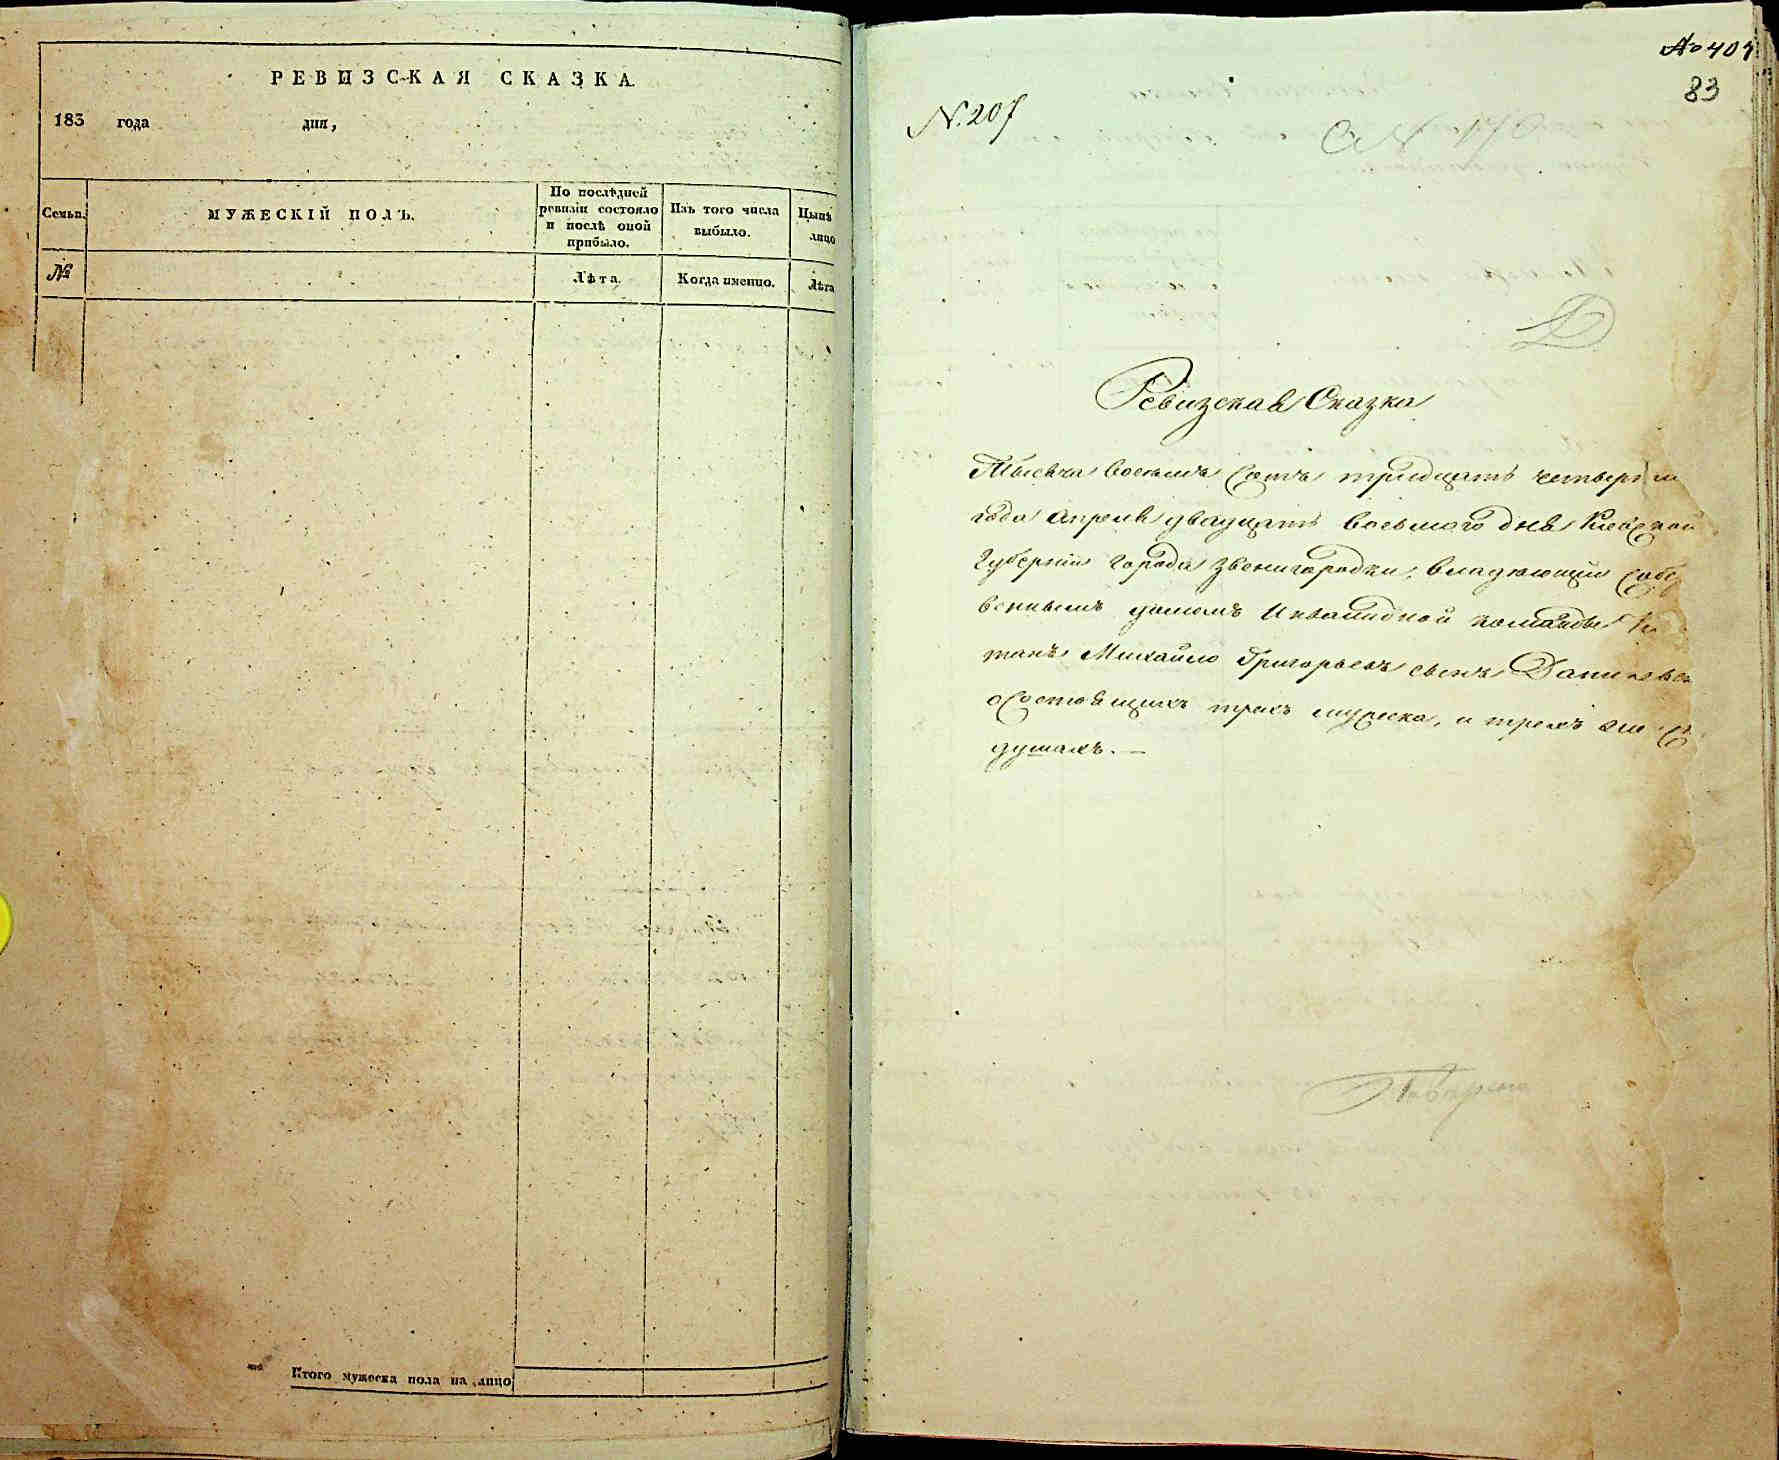 РЕВИЗСКАЯ СКАЗКА.
183 года дня,
Семьи. МУЖЕСКІЙ ПОЛЪ. По послѣдней ревизіи состояло и послѣ оной прибыло. Изъ того числа выбыло. Нынѣ лицо
№ Лѣта. Когда именно. Лѣта
Итого мужеска пола на лицо
83
N. 207
Ревизская Сказка
Тысяча восемь сотъ тридцать четвертаго
года апреля двадцать восьмого дня Киевской
Губернии города Звенигородки, владеющий собс
веннымъ домомъ Инвалидной команды
танъ Михайло Григорьевъ сынъ Данилевск
о состоящихъ трехъ мужеска, и трехъ
душахъ. —